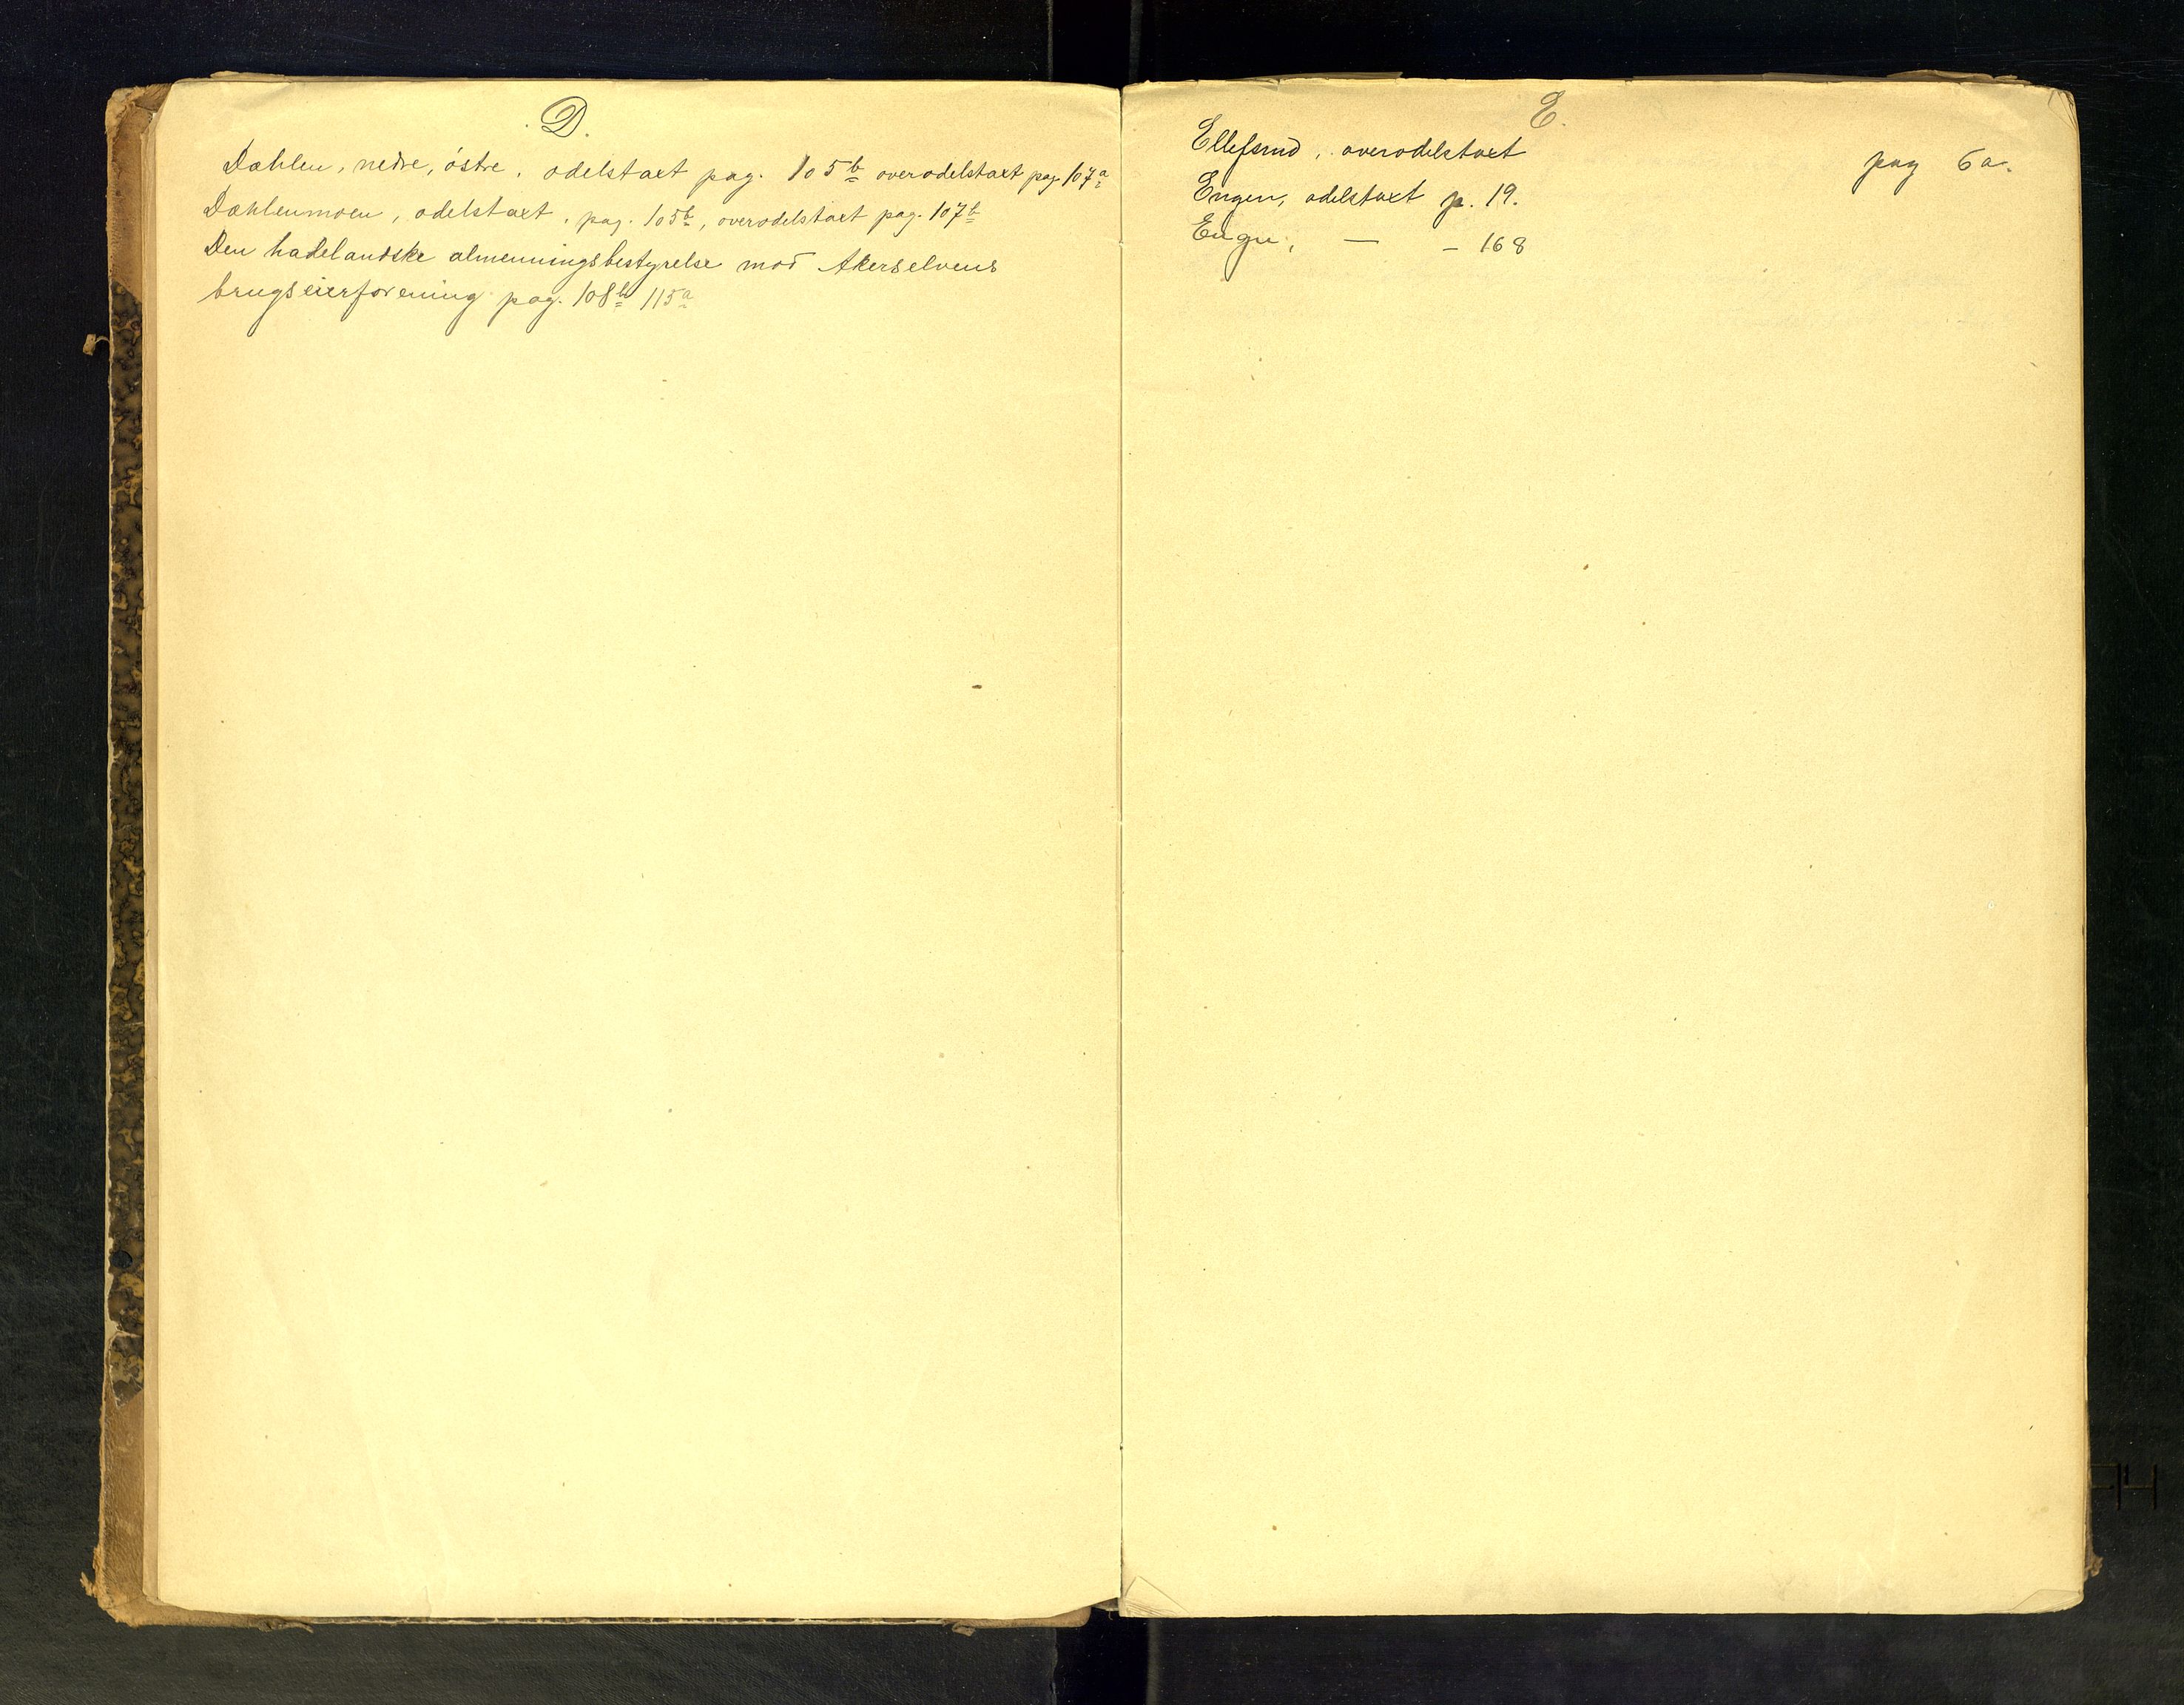 D.
Dæhlen, nedre, østre, odelstaxt pag. 105b overodelstaxt pag. 107a
Dæhlenmoen, odelstaxt, pag. 105b, overodelstaxt pag. 107b
Den hadelandske almenningsbestyrelse mod Akerselvens
brugseierforening pag. 108b 115a
E.
Ellefsrud, overodelstaxt pag 6a.
Engen, odelstaxt p. 19.
Enger, — - 168